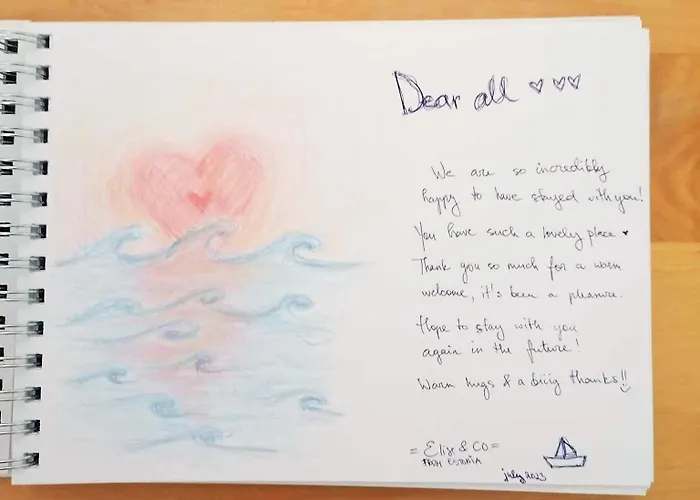 Dear all ♡ ♡♡
We are so incredibly
happy to have stayed with you!
You have such a lovely place ♥
Thank you so much for a warm
welcome, it's been a pleasure.
Hope to stay with you
again in the future!
Warm hugs & a biiig thanks!!
= Elise & Co =
FROM ESTONIA
july 2023